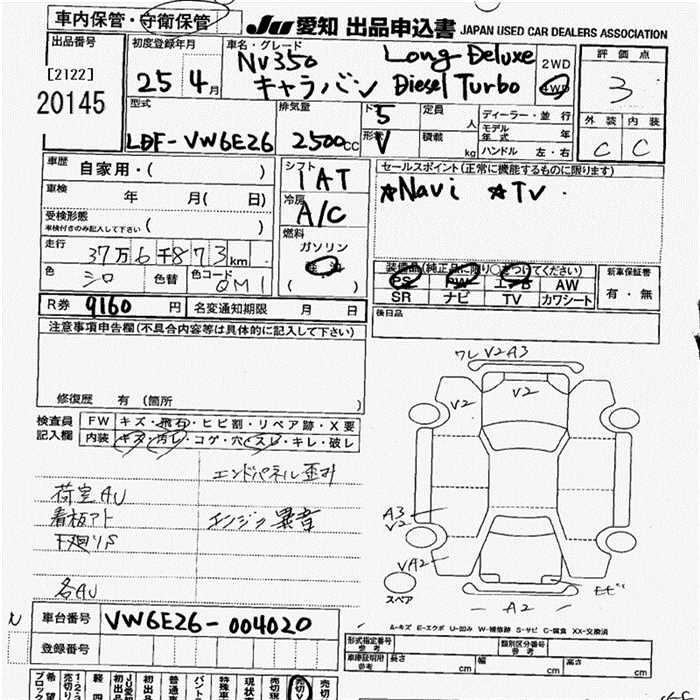 車内保管・守衛保管
JU 愛知 出品申込書 JAPAN USED CAR DEALERS ASSOCIATION
出品番号
[2122]
20145
初度登録年月
25年4月
車名・グレード
NV350 Long Deluxe
キャラバン Diesel Turbo
2WD
4WD
評価点
3
外装 内装
C C
型式
LDF-VW6E26
排気量
2500cc
ド 5
形状 V
定員 人
積載 kg
ディーラー・並行
モデル年式 年
ハンドル 左・右
車歴 自家用・( )
車検 年 月( 日)
受検形態
車検付きのみ記入して下さい ( )
走行 37万6千873km
色 シロ 色替 色コード QM1
シフト
IAT
冷房
A/C
燃料
ガソリン
軽油
( )
セールスポイント(正常に機能するものに限ります)
☆Navi ☆TV
装備品(純正品に限り○をつけてください)
PS PW エアB AW
SR ナビ TV カワシート
新車保証書
有・無
R券 9160円 名変通知期限 月 日
後日品
注意事項申告欄(不具合内容等は具体的に記入して下さい)
修復歴 有 (箇所 )
検査員記入欄
FW キズ・飛石・ヒビ割・リペア跡・X要
内装 キズ・汚レ・コゲ・穴・スレ・キレ・破レ
エンドパネル歪ミ
荷室AU
看板アト エンジン異音
下廻りS
各AU
ワレ V2A3
V2 V2
A3
V2
VA2
A2
スペア
A-キズ E-エクボ U-凹み W-補修跡 S-サビ C-腐食 XX-交換済
N
車台番号 VW6E26-004020
登録番号
形式指定番号 参考
類別区分番号 参考
車庫証明用 参考 長さ cm 幅 cm 高さ cm